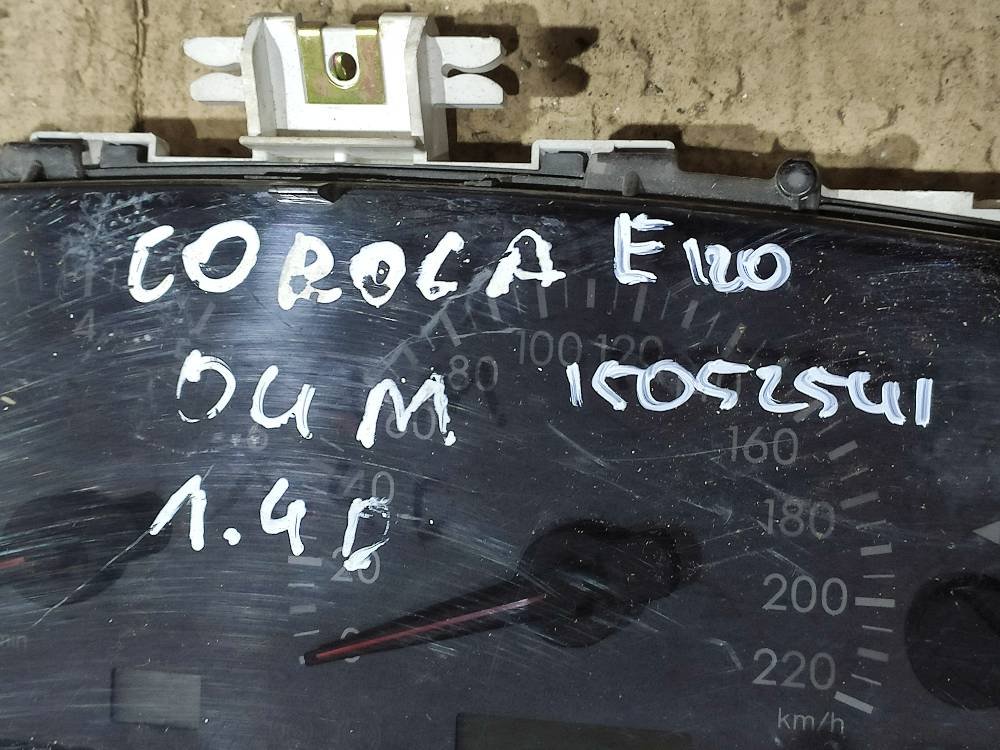 COROLA E120
04 M 15052541
1.4D
4
80 100 120
60 160
40 180
20 200
0 220
km/h